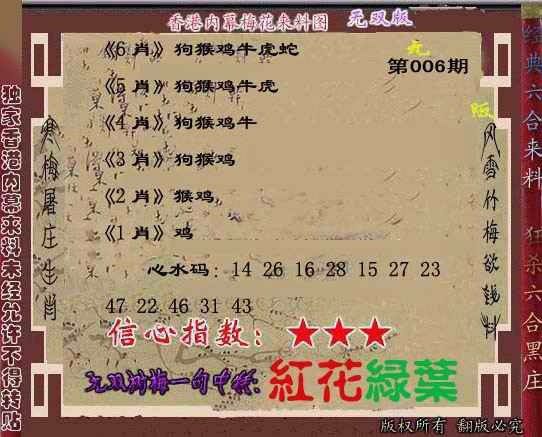 香港内幕梅花来料图 无双版
《6 肖》狗猴鸡牛虎蛇
第006期
《5 肖》狗猴鸡牛虎
《4 肖》狗猴鸡牛
《3 肖》狗猴鸡
《2 肖》猴鸡
《1 肖》鸡
心水码：14 26 16 28 15 27 23
47 22 46 31 43
信心指数：★★★
紅花綠葉
版权所有 翻版必究
独家香港内幕来料未经允许不得转贴
寒梅屠庄生肖
风雪竹梅欲钱料
经典六合来料
狂杀六合黑庄